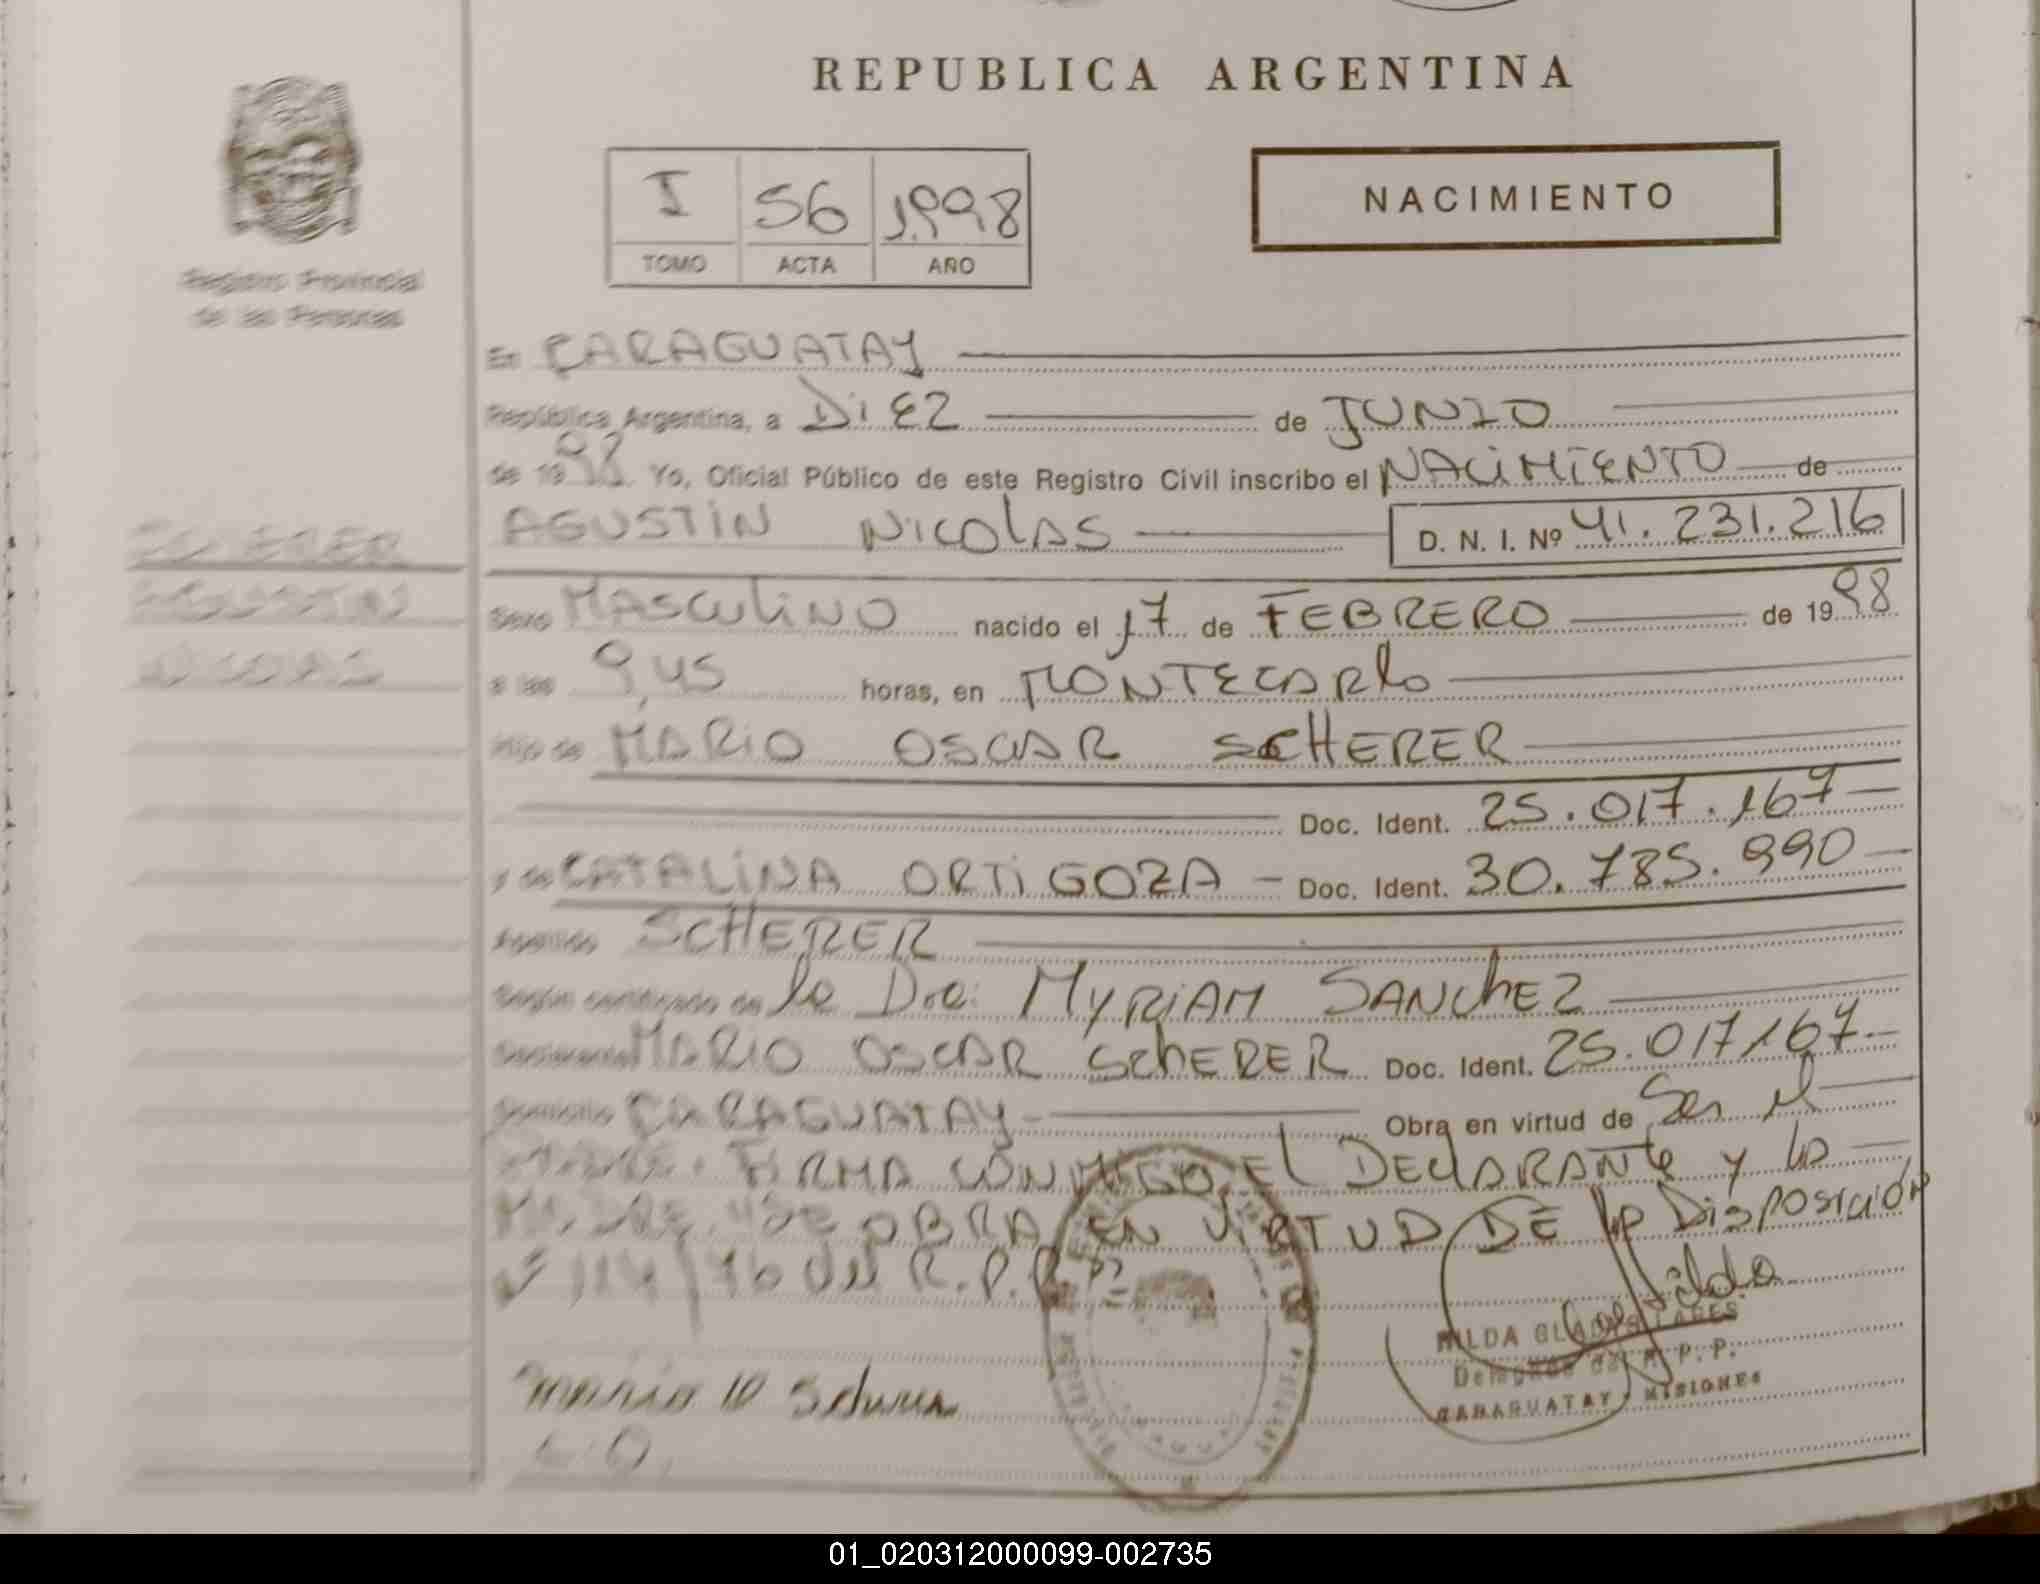 REPUBLICA ARGENTINA
I 56 1998
TOMO ACTA AÑO
NACIMIENTO
Registro Provincial
de las Personas
En CARAGUATAY
República Argentina, a DIEZ de JUNIO
de 1998 Yo, Oficial Público de este Registro Civil inscribo el NACIMIENTO de
AGUSTIN NICOLAS D. N. I. Nº 41.231.216
SCHERER
AGUSTIN
NICOLAS
Sexo MASCULINO nacido el 17 de FEBRERO de 1998
a las 9,45 horas, en MONTECARLO
Hijo de MARIO OSCAR SCHERER
Doc. Ident. 25.017.167
y de CATALINA ORTIGOZA - Doc. Ident. 30.785.990
Apellido SCHERER
Según certificado de la Dra. MYRIAM SANCHEZ
Declarante MARIO OSCAR SCHERER Doc. Ident. 25.017167
Domicilio CARAGUATAY Obra en virtud de Ser el
PADRE. FIRMA CONMIGO EL DECLARANTE Y LA
MADRE. OBRA EN VIRTUD DE LA DISPOSICIÓN
Nº 114/76 del R.P.P.
Mario O Scherer
C.O.
HILDA GLADYS LARES
Delegada del R. P. P.
CARAGUATAY - MISIONES
01_020312000099-002735